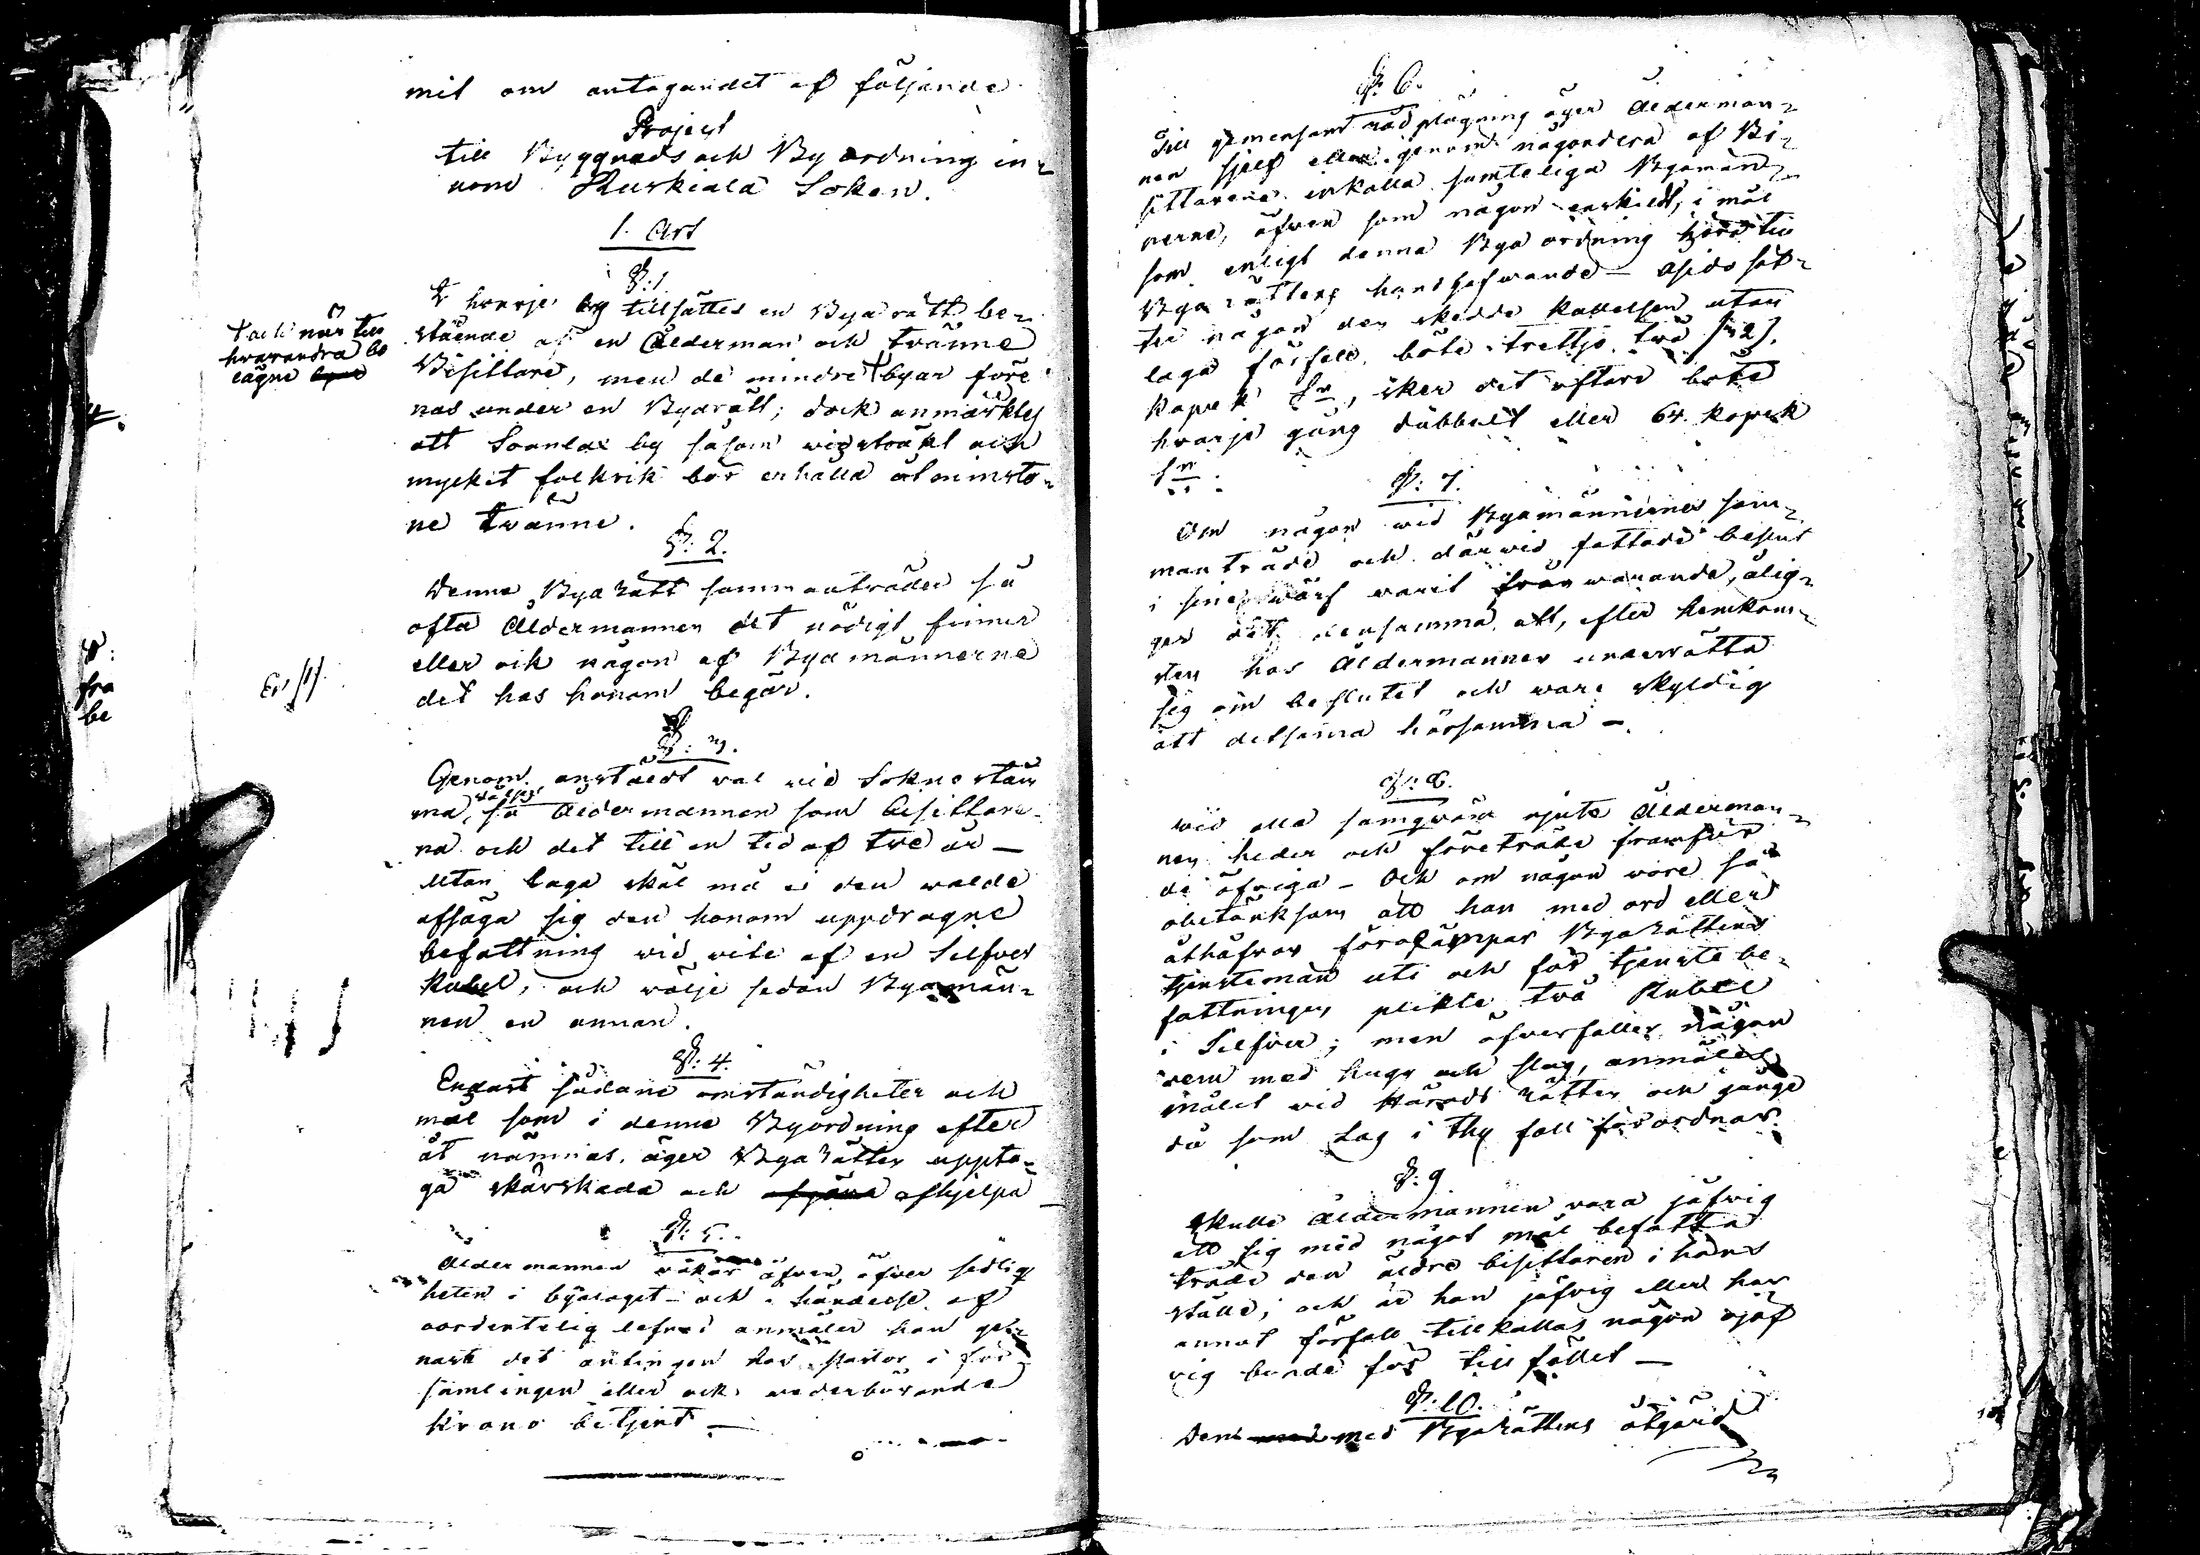 mit om antagandet af följande
Project
till Byggnads och By ordning in-
nom Ruskiala Soken.
1. Art
§: 1
I hvarje by tillsättes en Bya rätt be-
stående af en Ålderman och tvänne
Bisittare, men de mindre † byar före
nas under en Byarätt; dock anmärktes
att Soanlax by såsom vidsträkt och
mycket folkrik bör erhålla åtminsto-
ne tvänne.
† och när till
hvarandra be
lägne
§: 2.
Denne Bya Rätt sammanträder så
ofta Åldermannen det nödigt finner
eller ock någon af Byamännerne
det hos honom begär.
§: 3.
Genom anstäldt val vid Sokne stäm
ma, väljes så Åldermannen som bisittare-
na och det till en tid af tre år —
Utan laga skäl må ej den valde
afsäga sig den honom uppdragne
befattning vid vite af en Silfver
Rubel, och välje sedan Byamän-
nen en annan.
§: 4.
Endast sådane omständigheter och
mål som i denne Byordning efter
åt nämnas, äger Bya Rätten uppta-
ga skärskåda och afgöra afhjelpa —
§: 5.
Åldermannen vakar äfven öfver sedlig
heten i byalaget – och i händelse af
oordentelig lefnad anmäler han
nast det antingen hos Pastor i för
samlingen eller ock vederbörande
Krono betjent —
§: 6.
Till gemensam rådplägning äger Ålderman-
nen sjelf eller genom någondera af Bi-
sittarene inkalla samteliga Byamän-
nerne, äfven som någon enskildt, i mål
som enligt denna Bya ordning höra till
Bya rättens handhafvande – Åsidosät-
ter någon den skedde kallelsen utan
laga förfall, böte trettjo två [32].
Kopek Sr, sker det oftare böte
hvarje gång dubbelt eller 64. kopek
Sr.
§: 7.
Om någon vid Byamännernes sam-
manträde och därvid fattade beslut
i sine värf varit frånvarande, ålig-
ger det densamma att, efter hemkom-
sten hos Åldermannen underrätta
sig om beslutet och vare skyldig
att detsamma hörsamma —.
§: 8.
Vid alla samqväm njute Ålderman-
nen heder och företräde framför
de öfriga – Och om någon vore så
obetänksam att han med ord eller
åthäfvor förolämpar Bya Rättens
tjensteman uti och för tjenste be-
fattningen, plikte två Rubel
i Silfver; men öfverfaller någon
dem med hugg och slag, anmäles
målet vid Härads Rätten och gånge
då som Lag i thy fall förordnar.
§: 9
Skulle Åldermannen vara jäfvig
att sig med något mål befatta
träde den äldre bisittaren i hans
ställe; och är han jäfvig eller har
annat förfall tillkallas någon ojäf
vig bonde för tillfället —
§: 10.
Den med Bya Rättens åtgärd